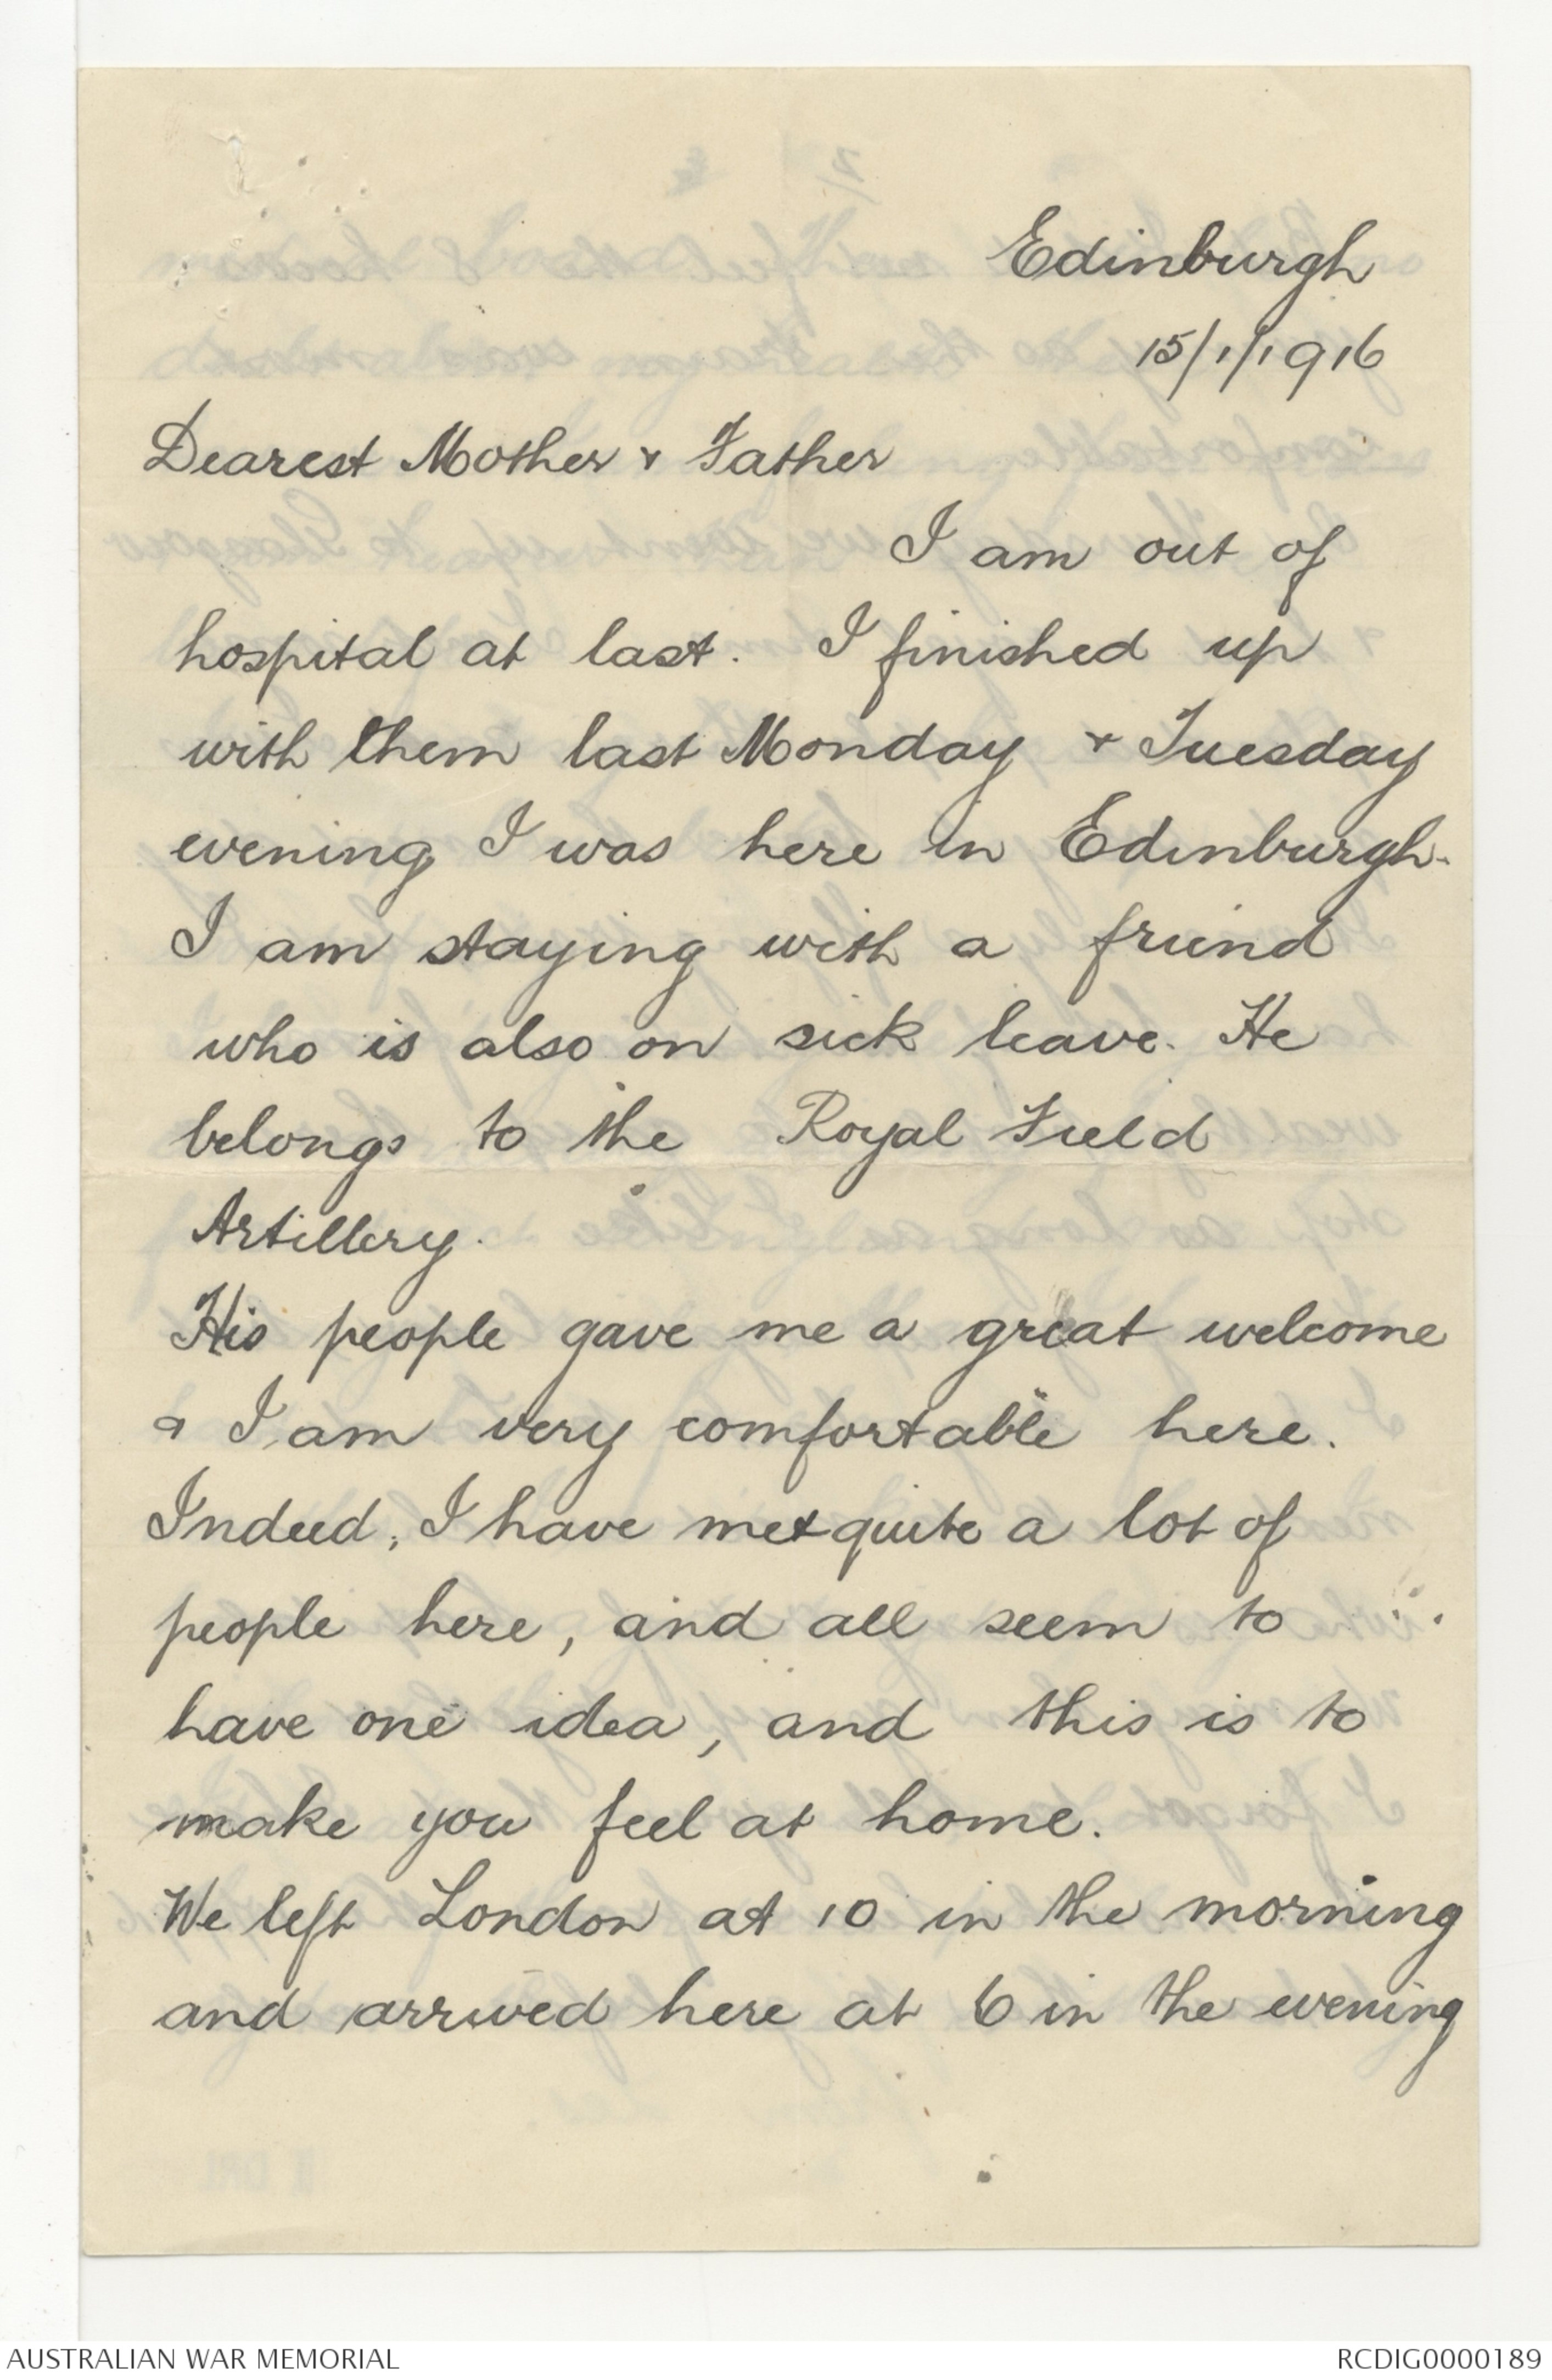 Edinburgh
15/1/1916
Dearest Mother & Father
I am out of
hospital at last. I finished up
with them last Monday & Tuesday
evening I was here in Edinburgh.
I am staying with a friend
who is also on sick leave. He
belongs to the Royal Field
Artillery.
His people gave me a great welcome
& I am very comfortable here.
Indeed, I have met quite a lot of
people here, and all seem to
have one idea, and this is to
make you feel at home.
We left London at 10 in the morning
and arrived here at 6 in the evening
AUSTRALIAN WAR MEMORIAL
RCDIG0000189